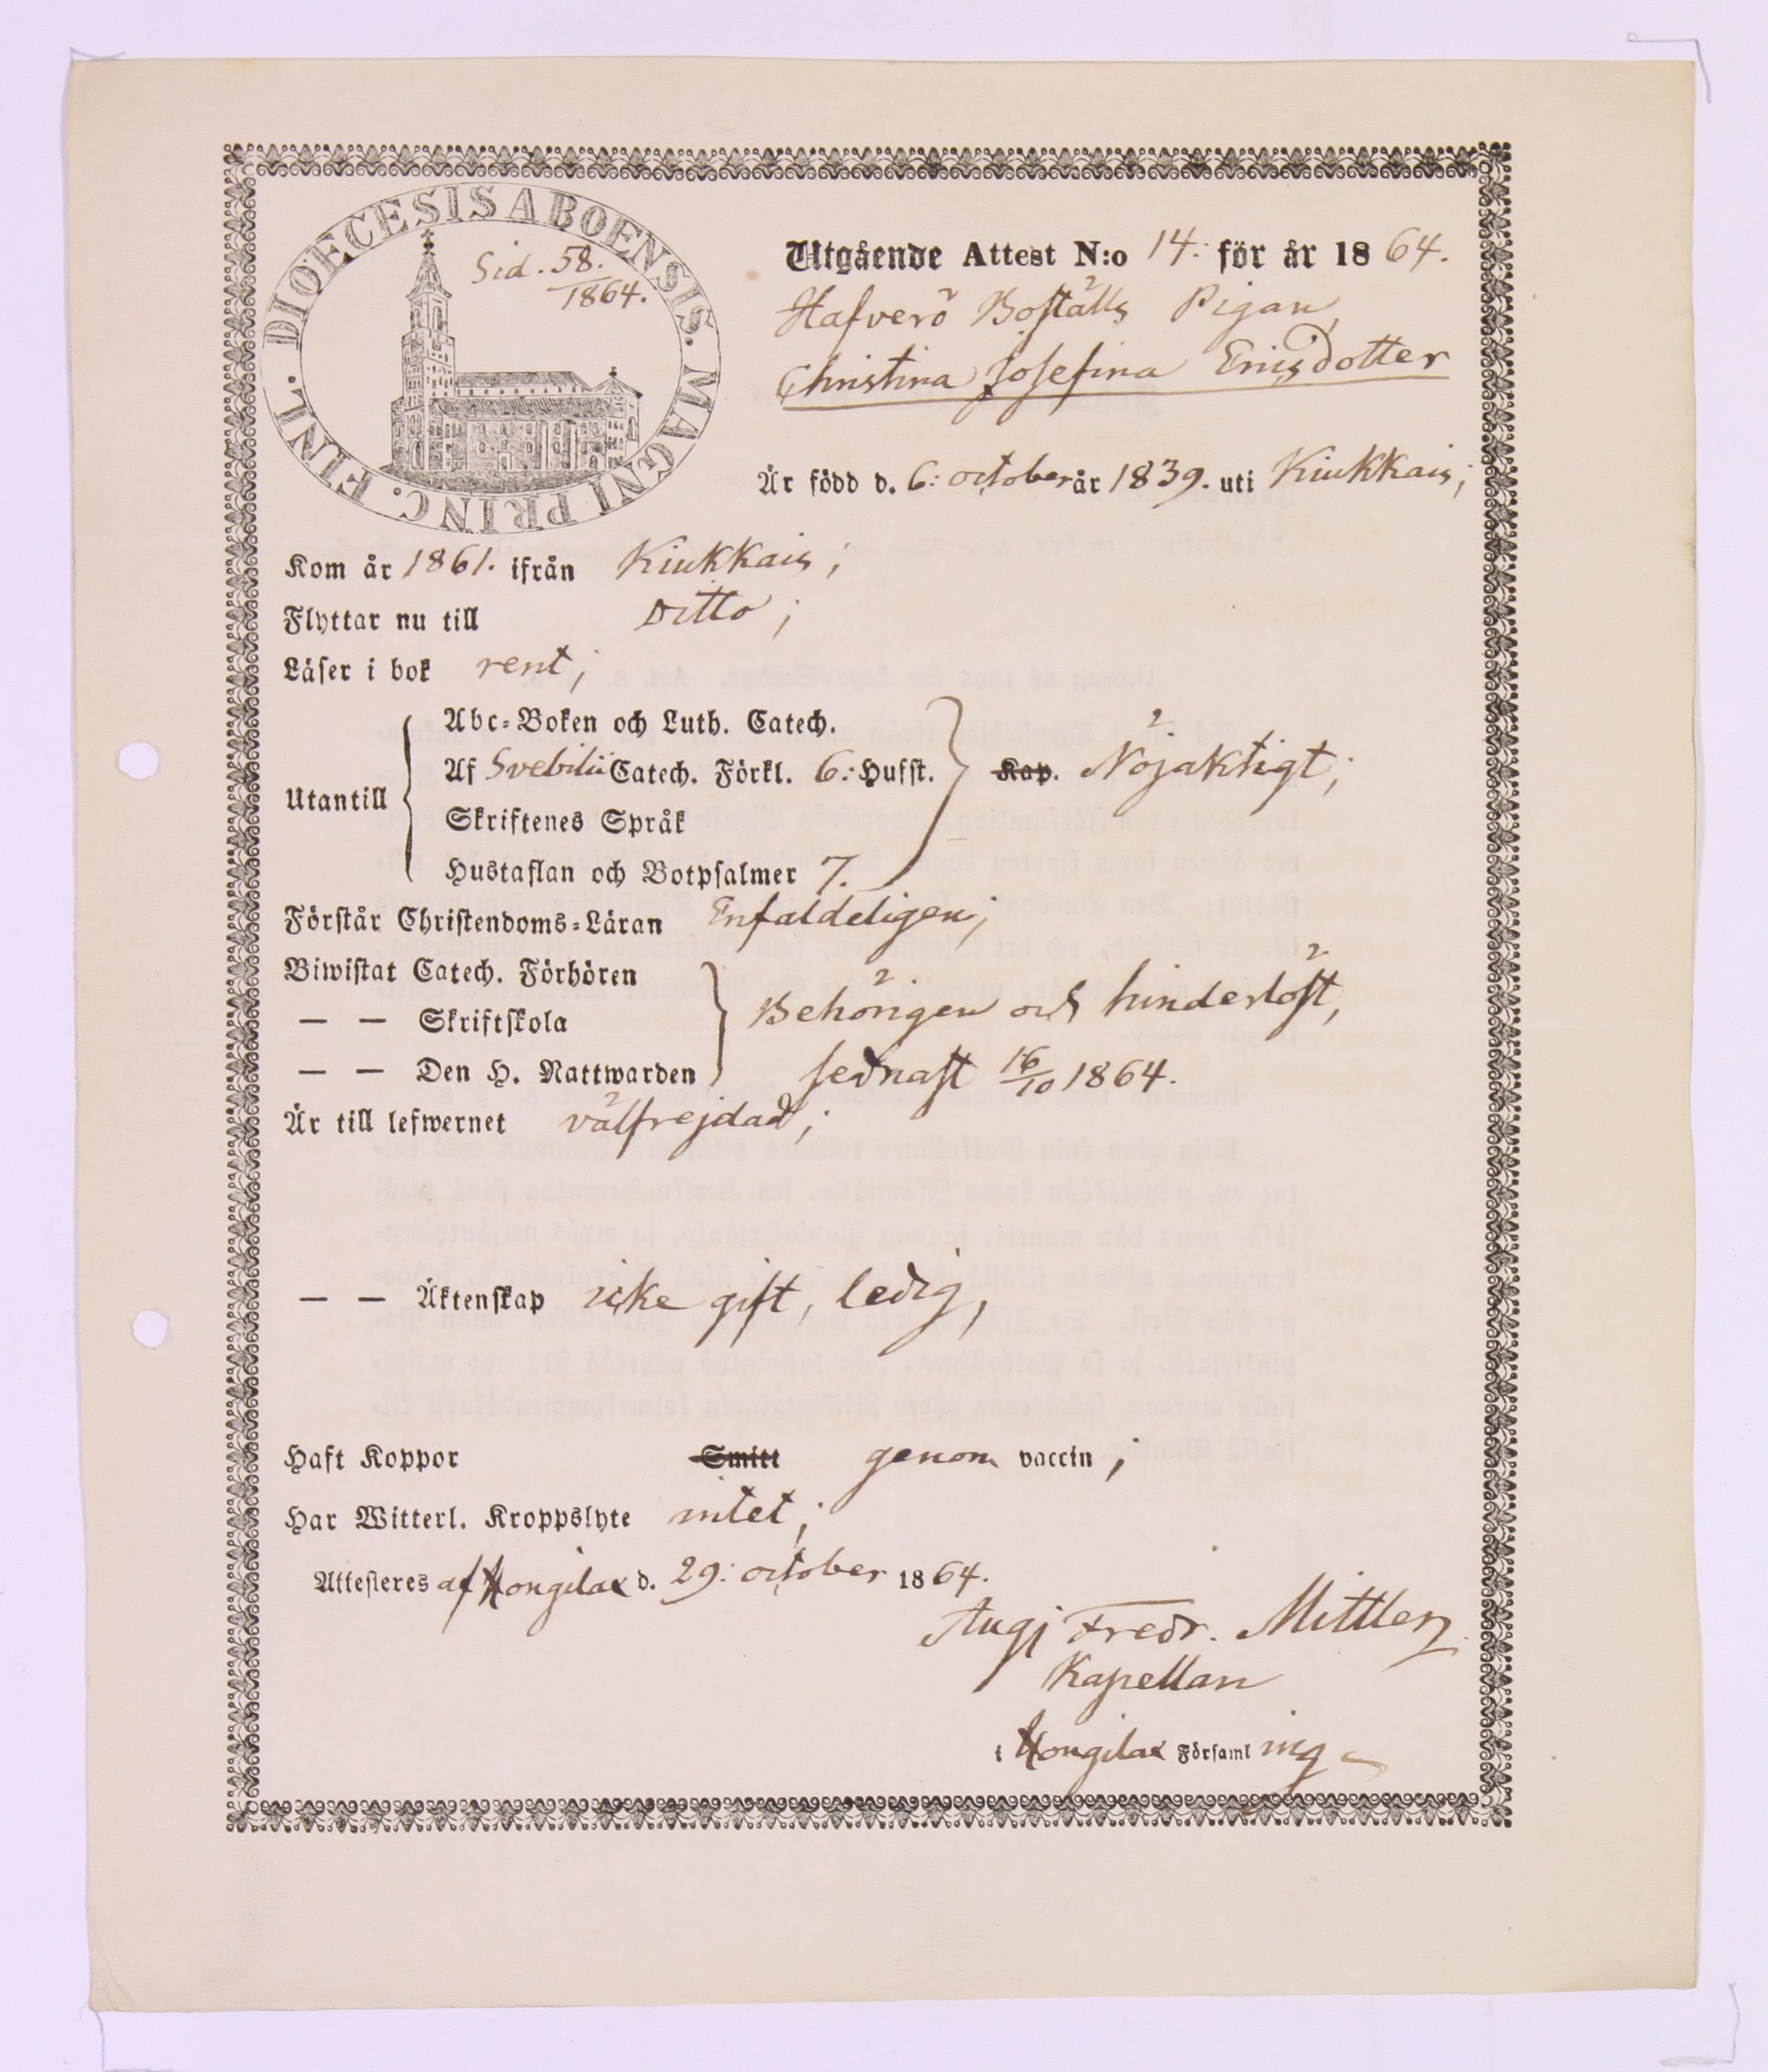 DIOECESIS ABOENSIS. MAGNI PRINC. FINL.
Sid. 58.
1864.
Utgående Attest N:o 14. för år 1864.
Hafverö Boställs Pigan
Christina Josefina Ericsdotter
Är född d. 6: october år 1839. uti Kiukkais;
Kom år 1861. ifrån Kiukkais;
Flyttar nu till Ditto;
Läser i bok rent;
Utantill
Abc-Boken och Luth. Catech.
Af Svebilii Catech. Förkl. 6: Hufst. Kap. Nöjaktigt;
Skriftenes Språk
Hustaflan och Botpsalmer 7.
Förstår Christendoms-Läran Enfaldeligen;
Biwistat Catech. Förhören
— — Skriftskola Behörigen och hinderlöst,
— — Den H. Nattwarden sednast 16/10 1864.
Är till lefwernet välfrejdad;
— — Äktenskap icke gift, ledig,
Haft Koppor Smitt genom vaccin;
Har Witterl. Kroppslyte intet;
Attesteres af Hongilax d. 29: october 1864.
Aug. Fredr. Mittler
Kapellan
i Hongilax Församling